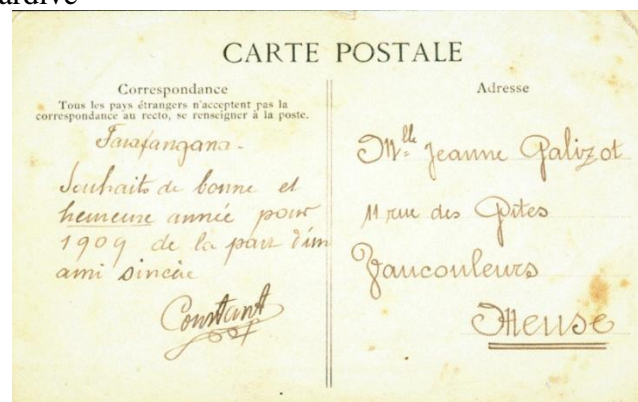 ardive
CARTE POSTALE
Correspondance
Tous les pays étrangers n'acceptent pas la
correspondance au recto, se renseigner à la poste.
Farafangana -
Souhaits de bonne et
heureuse année pour
1909 de la part d'un
ami sincère
Constant
Adresse
Mlle Jeanne Galizot
11 rue des
Vaucouleurs
Meuse